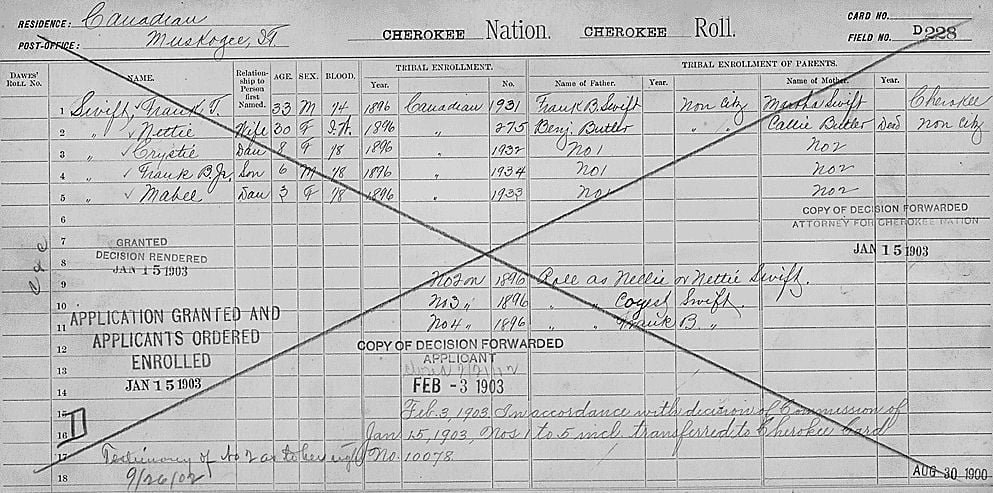 RESIDENCE: Canadian
POST-OFFICE: Muskogee, I.T.
CHEROKEE Nation. CHEROKEE Roll.
CARD NO.
FIELD NO. D 228
DAWES' ROLL NO. NAME. Relationship to Person first Named. AGE. SEX. BLOOD. TRIBAL ENROLLMENT. TRIBAL ENROLLMENT OF PARENTS.
Year. No. Name of Father. Year. Name of Mother. Year.
1 Swift, Frank T. 33 M 1/4 1896 Canadian 1931 Frank B. Swift Non Citz Martha Swift Cherokee
2 " Nettie Wife 30 F I.W. 1896 " 275 Benj. Butler " " Callie Butler Dead Non Citz
3 " Crystie Dau 8 F 1/8 1896 " 1932 No 1 No 2
4 " Frank B, Jr. Son 6 M 1/8 1896 " 1934 No 1 No 2
5 " Mabel Dau 3 F 1/8 1896 " 1933 No 1 No 2
6
COPY OF DECISION FORWARDED
ATTORNEY FOR CHEROKEE NATION
JAN 15 1903
7 GRANTED
8 DECISION RENDERED
JAN 15 1903
9 No 2 on 1896 Roll as Nellie or Nettie Swift.
10 No 3 " 1896 " " Cogest Swift.
11 No 4 " 1896 " " Frank B. "
APPLICATION GRANTED AND
APPLICANTS ORDERED
ENROLLED
JAN 15 1903
12 COPY OF DECISION FORWARDED
13 APPLICANT
14 FEB -3 1903
15 Feb. 3, 1903, In accordance with decision of Commission of
16 Jan 15, 1903, Nos 1 to 5 incl. transferred to Cherokee Card
17 No. 10078
D
Testimony of No 2 as to her right
18 9/26/02
AUG 30 1900